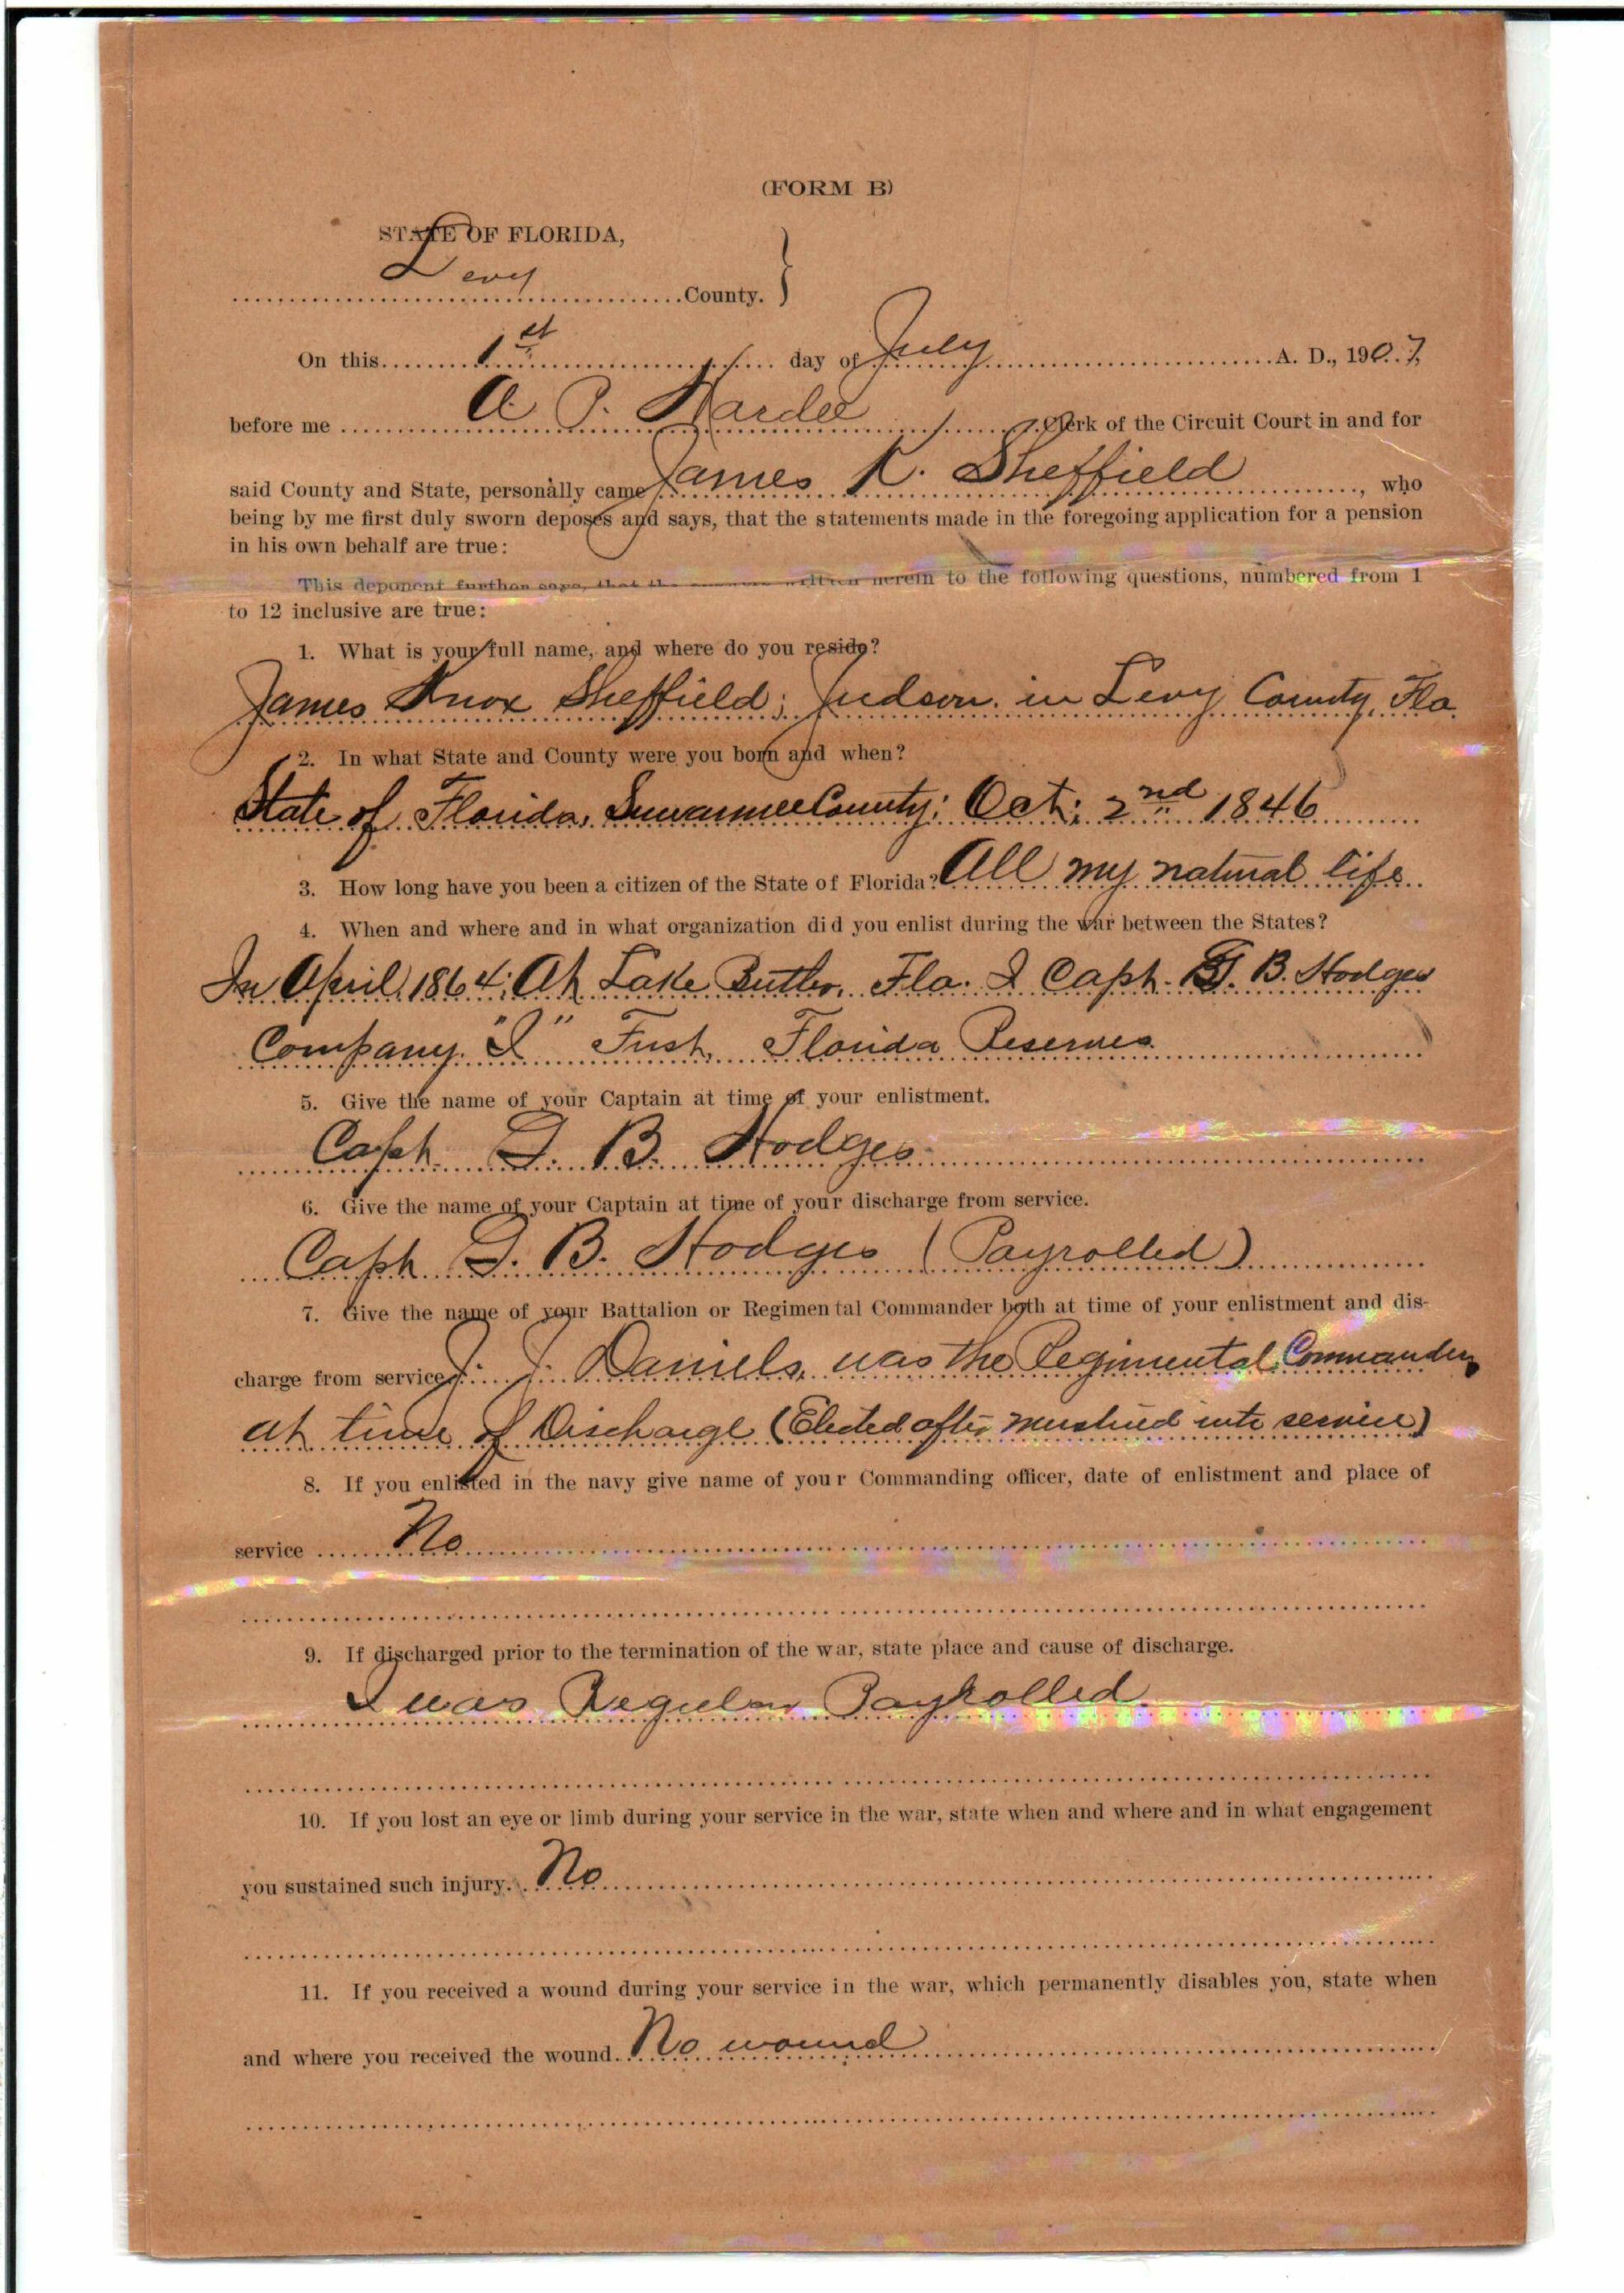 (FORM B)
STATE OF FLORIDA,
Levy County.
On this 1st day of July A. D., 1907,
before me A. P. Hardee, Clerk of the Circuit Court in and for
said County and State, personally came James K. Sheffield, who
being by me first duly sworn deposes and says, that the statements made in the foregoing application for a pension
in his own behalf are true:
This deponent further says, that the answers written herein to the following questions, numbered from 1
to 12 inclusive are true:
1. What is your full name, and where do you reside?
James Knox Sheffield; Judson. in Levy County, Fla.
2. In what State and County were you born and when?
State of Florida, Suwannee County; Oct; 2nd 1846
3. How long have you been a citizen of the State of Florida? All my natural life.
4. When and where and in what organization did you enlist during the war between the States?
In April, 1864; At Lake Butler, Fla. Capt. B. Hodges
Company "I" First, Florida Reserves.
5. Give the name of your Captain at time of your enlistment.
Capt. G. B. Hodges
6. Give the name of your Captain at time of your discharge from service.
Capt G. B. Hodges (Payrolled)
7. Give the name of your Battalion or Regimental Commander both at time of your enlistment and dis-
charge from service J. J. Daniels, was the Regimental Commander,
at time of Discharge (Elected after mustired into service)
8. If you enlisted in the navy give name of your Commanding officer, date of enlistment and place of
service No
9. If discharged prior to the termination of the war, state place and cause of discharge.
I was Regular Payrolled.
10. If you lost an eye or limb during your service in the war, state when and where and in what engagement
you sustained such injury. No
11. If you received a wound during your service in the war, which permanently disables you, state when
and where you received the wound. No wound